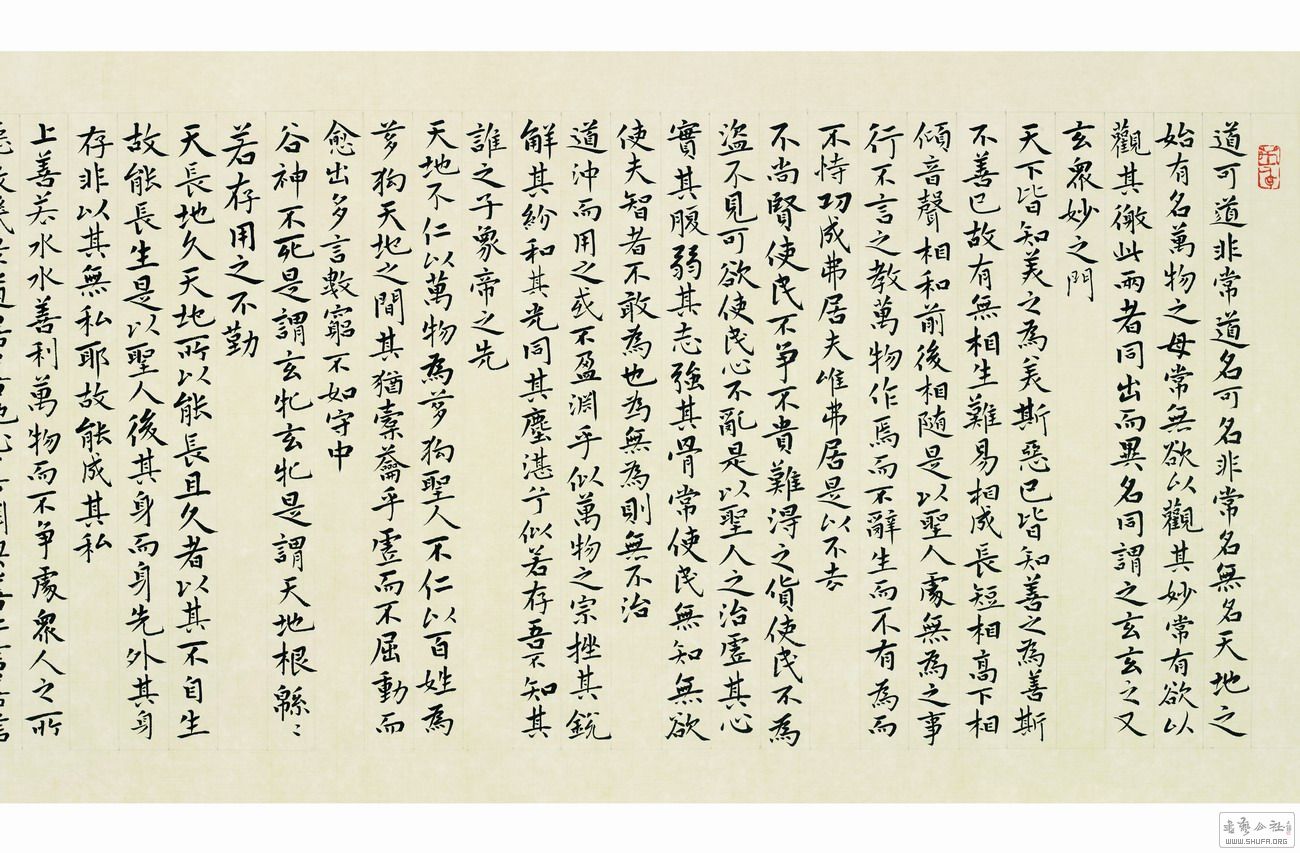 道可道非常道名可名非常名無名天地之
始有名萬物之母常無欲以觀其妙常有欲以
觀其徼此兩者同出而異名同謂之玄玄之又
玄眾妙之門
天下皆知美之為美斯惡已皆知善之為善斯
不善已故有無相生難易相成長短相高下相
傾音聲相和前後相隨是以聖人處無為之事
行不言之教萬物作焉而不辭生而不有為而
不恃功成弗居夫唯弗居是以不去
不尚賢使民不爭不貴難得之貨使民不為
盜不見可欲使民心不亂是以聖人之治虛其心
實其腹弱其志強其骨常使民無知無欲
使夫智者不敢為也為無為則無不治
道沖而用之或不盈淵乎似萬物之宗挫其銳
解其紛和其光同其塵湛兮似若存吾不知其
誰之子象帝之先
天地不仁以萬物為芻狗聖人不仁以百姓為
芻狗天地之間其猶橐籥乎虛而不屈動而
愈出多言數窮不如守中
谷神不死是謂玄牝玄牝是謂天地根緜〻
若存用之不勤
天長地久天地所以能長且久者以其不自生
故能長生是以聖人後其身而身先外其身
存非以其無私耶故能成其私
上善若水水善利萬物而不爭處眾人之所
WWW.SHUFA.ORG